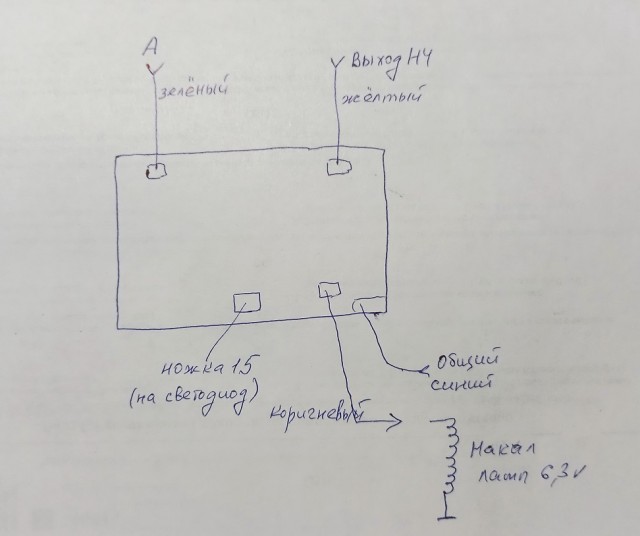 А
зелёный
Выход НЧ
жёлтый
ножка 15
(на светодиод)
общий
синий
коригневый
Накал
ламп 6,3v